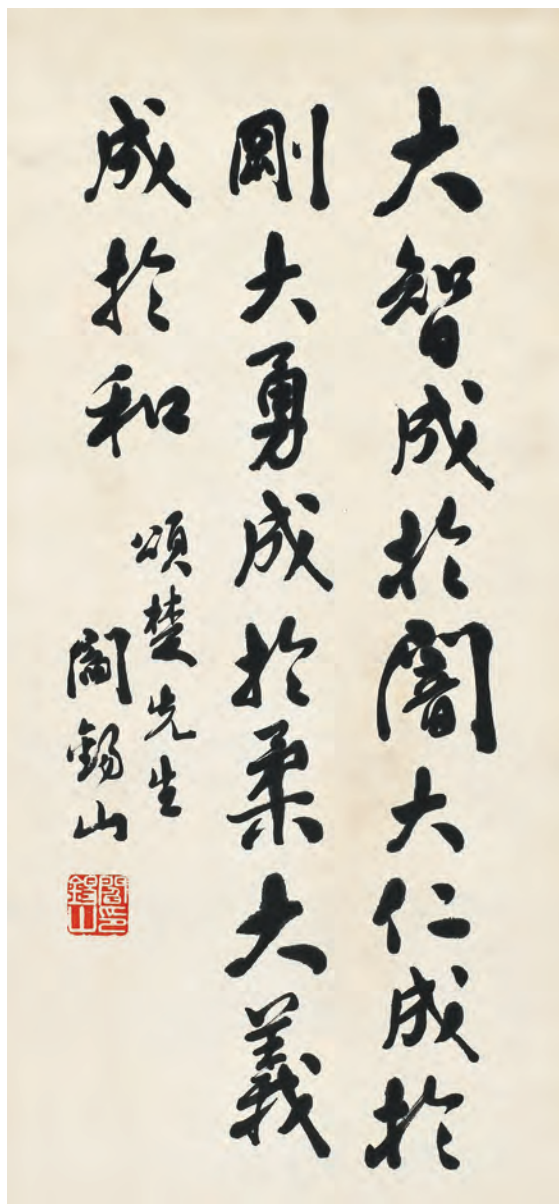 大智成於闇大仁成於
剛大勇成於柔大義
成於和
頌楚先生
閻錫山
閻錫山印